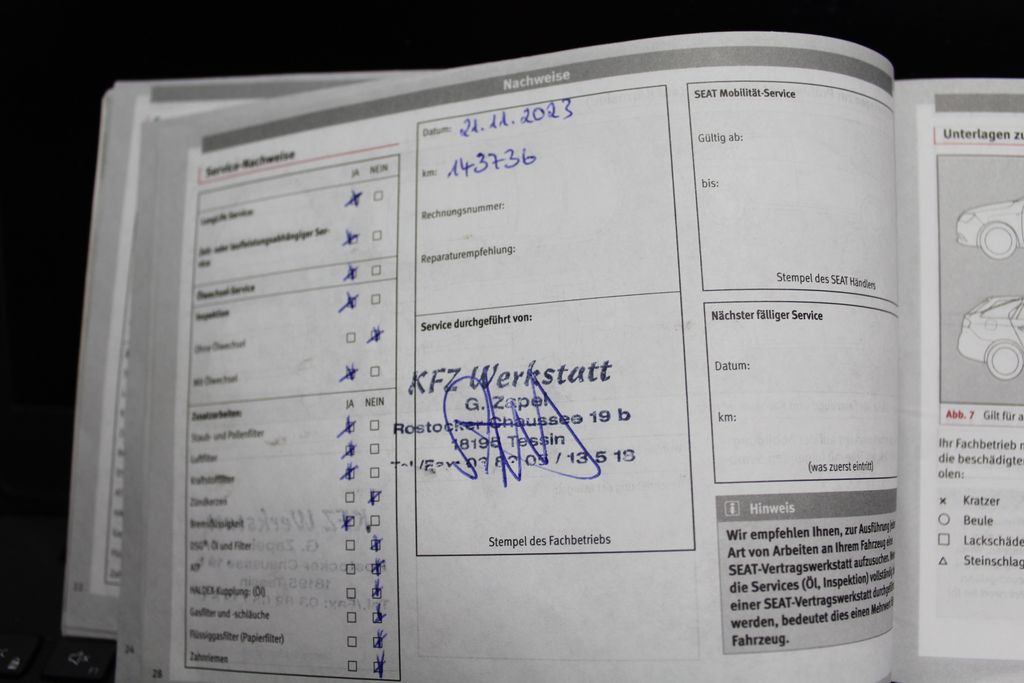 Nachweise
Service-Nachweise
JA NEIN
LongLife-Service
Zeit- oder laufleistungsabhängiger Ser-
vice
Ölwechsel-Service
Inspektion
Ohne Ölwechsel
Mit Ölwechsel
Zusatzarbeiten: JA NEIN
Staub- und Pollenfilter
Luftfilter
Kraftstofffilter
Zündkerzen
Bremsflüssigkeit
DSG®: Öl und Filter
HALDEX-Kupplung: (Öl)
Gasfilter und -schläuche
Flüssiggasfilter (Papierfilter)
Zahnriemen
28
Datum: 21.11.2023
km: 143736
Rechnungsnummer:
Reparaturempfehlung:
Service durchgeführt von:
KFZ Werkstatt
G. Zapel
Rostocker Chaussee 19 b
18195 Tessin
Tel./Fax: 03 82 05 / 13 5 18
Stempel des Fachbetriebs
SEAT Mobilität-Service
Gültig ab:
bis:
Stempel des SEAT Händlers
Nächster fälliger Service
Datum:
km:
(was zuerst eintritt)
Hinweis
Wir empfehlen Ihnen, zur Ausführung
Art von Arbeiten an Ihrem Fahrzeug
SEAT-Vertragswerkstatt aufzusuchen.
die Services (Öl, Inspektion) vollständig
einer SEAT-Vertragswerkstatt
werden, bedeutet dies einen Mehrwert
Fahrzeug.
Unterlagen zu
Abb. 7 Gilt für a
Ihr Fachbetrieb
die beschädigten
olen:
Kratzer
Beule
Lackschäde
Steinschlag